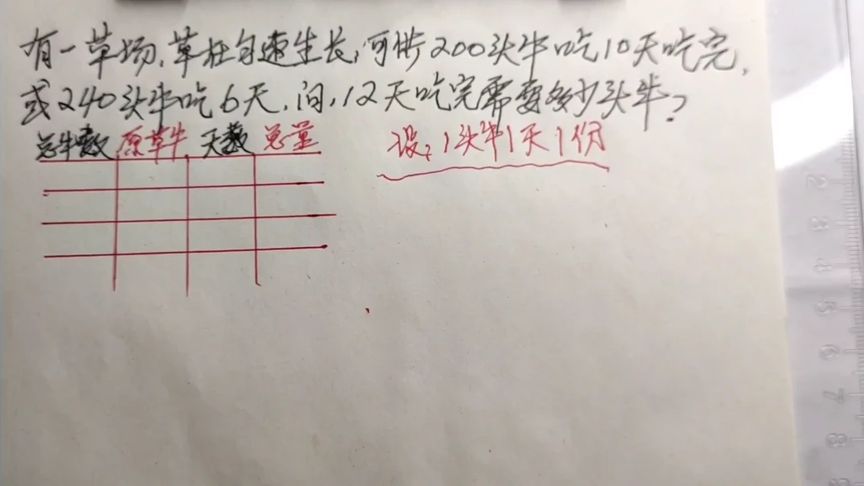 有一草场,草在匀速生长,可供200头牛吃10天吃完,
或240头牛吃6天,问,12天吃完需要多少头牛?
总牛数 原草牛 天数 总量
设:1头牛1天1份
2
3
4
5
6
7
8